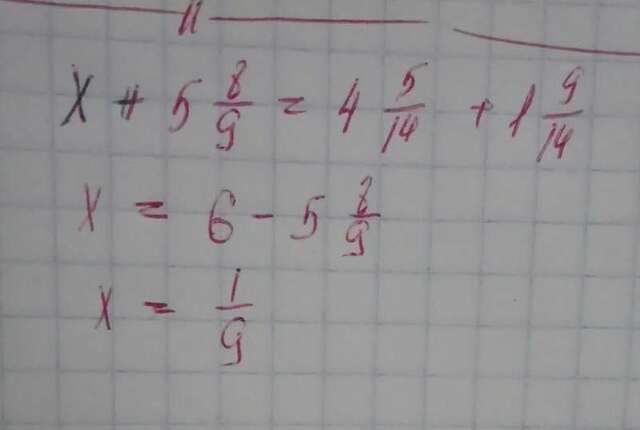 11
x + 5 8/9 = 4 5/14 + 1 9/14
x = 6 - 5 8/9
x = 1/9